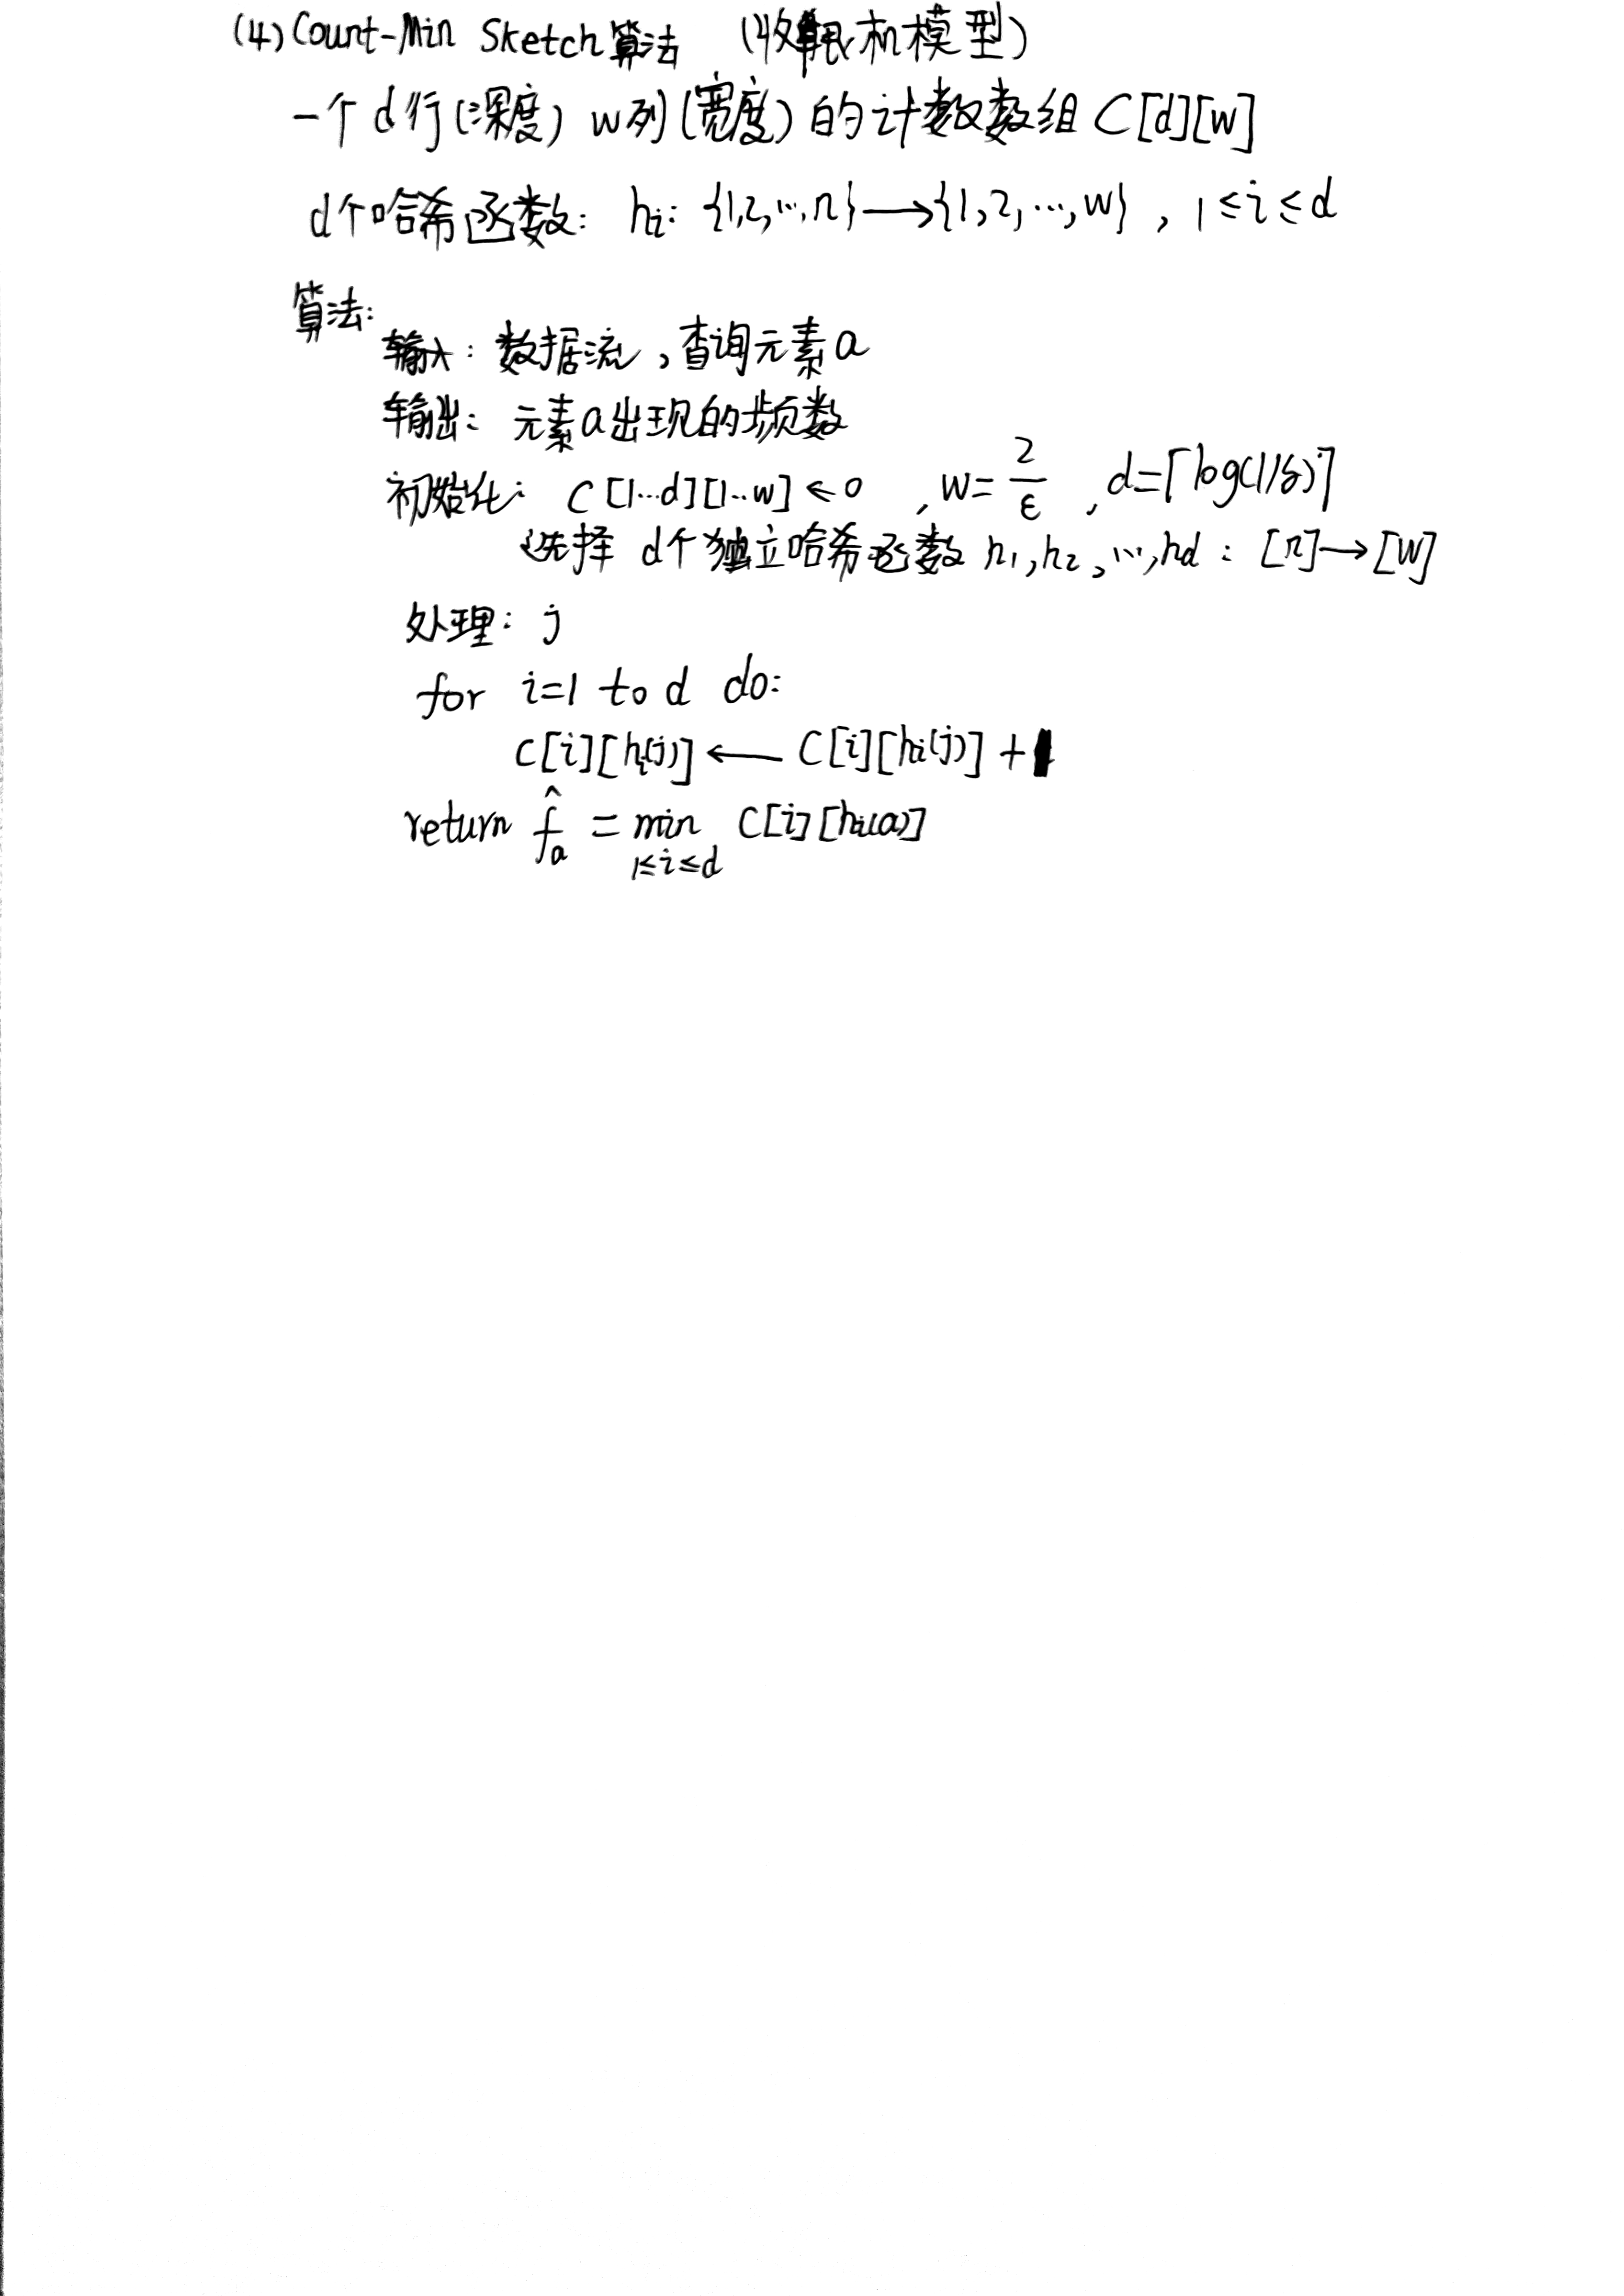 (4) Count-Min Sketch算法 (收银机模型)
一个d行(深度) w列(宽度) 的计数数组 C[d][w]
d个哈希函数: hᵢ: {1,2,…,n}→{1,2,…,w}, 1≤i≤d
算法:
输入: 数据流, 查询元素a
输出: 元素a出现的频数
初始化: C[1…d][1..w]←0 , w=2/ε , d=⌈log(1/δ)⌉
选择 d个独立哈希函数 h₁,h₂,…,hd : [n]→[w]
处理: j
for i=1 to d do:
C[i][hᵢ(j)] ← C[i][hᵢ(j)] + 1
return f̂ₐ = min C[i][hᵢ(a)]
1≤i≤d